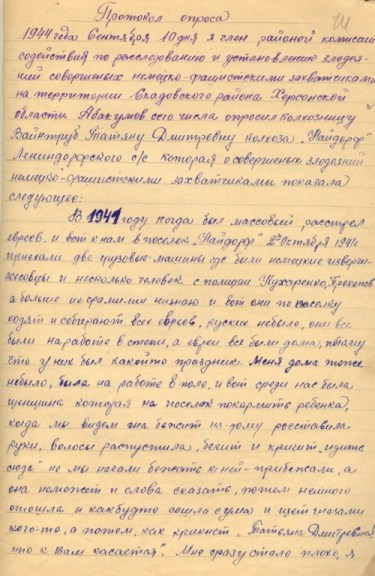 Протокол опроса
1944 года Сентября 10 дня я член районой комисии
содействия по расследованию и установлению злодея-
ний совершеных немецко-фашистскими захватчиками
на территории Скадовского района Херсонской
области Абакумов сего числа опросил колхозницу
Вайнтруб Татяну Дмитревну колхоза „Найдорф"
Лениндорфского с/с которая о совершеных злодеяний
немецко-фашистскими захватчиками показала
следующее:
В 1941 году когда был массовый расстрел
евреев, и вот к нам в поселок „Найдорф" 2го Октября 1941г
приехали две грузовые машины где были немецкие изверги-
гесовцы и несколько человек с полиции Кухаренко, Прокопов
а больше их фамилии низнаю и вот они по поселку
ходят и собирают всех евреев, руских небыло, они все
были на работе в степи, а евреи все были дома, потому
что у них был какойто праздник. Меня дома тоже
небыло, была на работе в поле, и вот среди нас была
женщина которая на поселок покормить ребенка,
когда мы видем она бежит из-дому росставила
руки, волосы распустила, бежит и кричит „идите
сюда" но мы начали бежать к ней-прибежали, а
она неможит и слова сказать, потом немного
отошла и какбудто сошла сума и щет глазами
кого-то, а потом, как крикнет, „Татьяна Дмитревна!
то к Вам касается". Мне сразу стало плохо, я